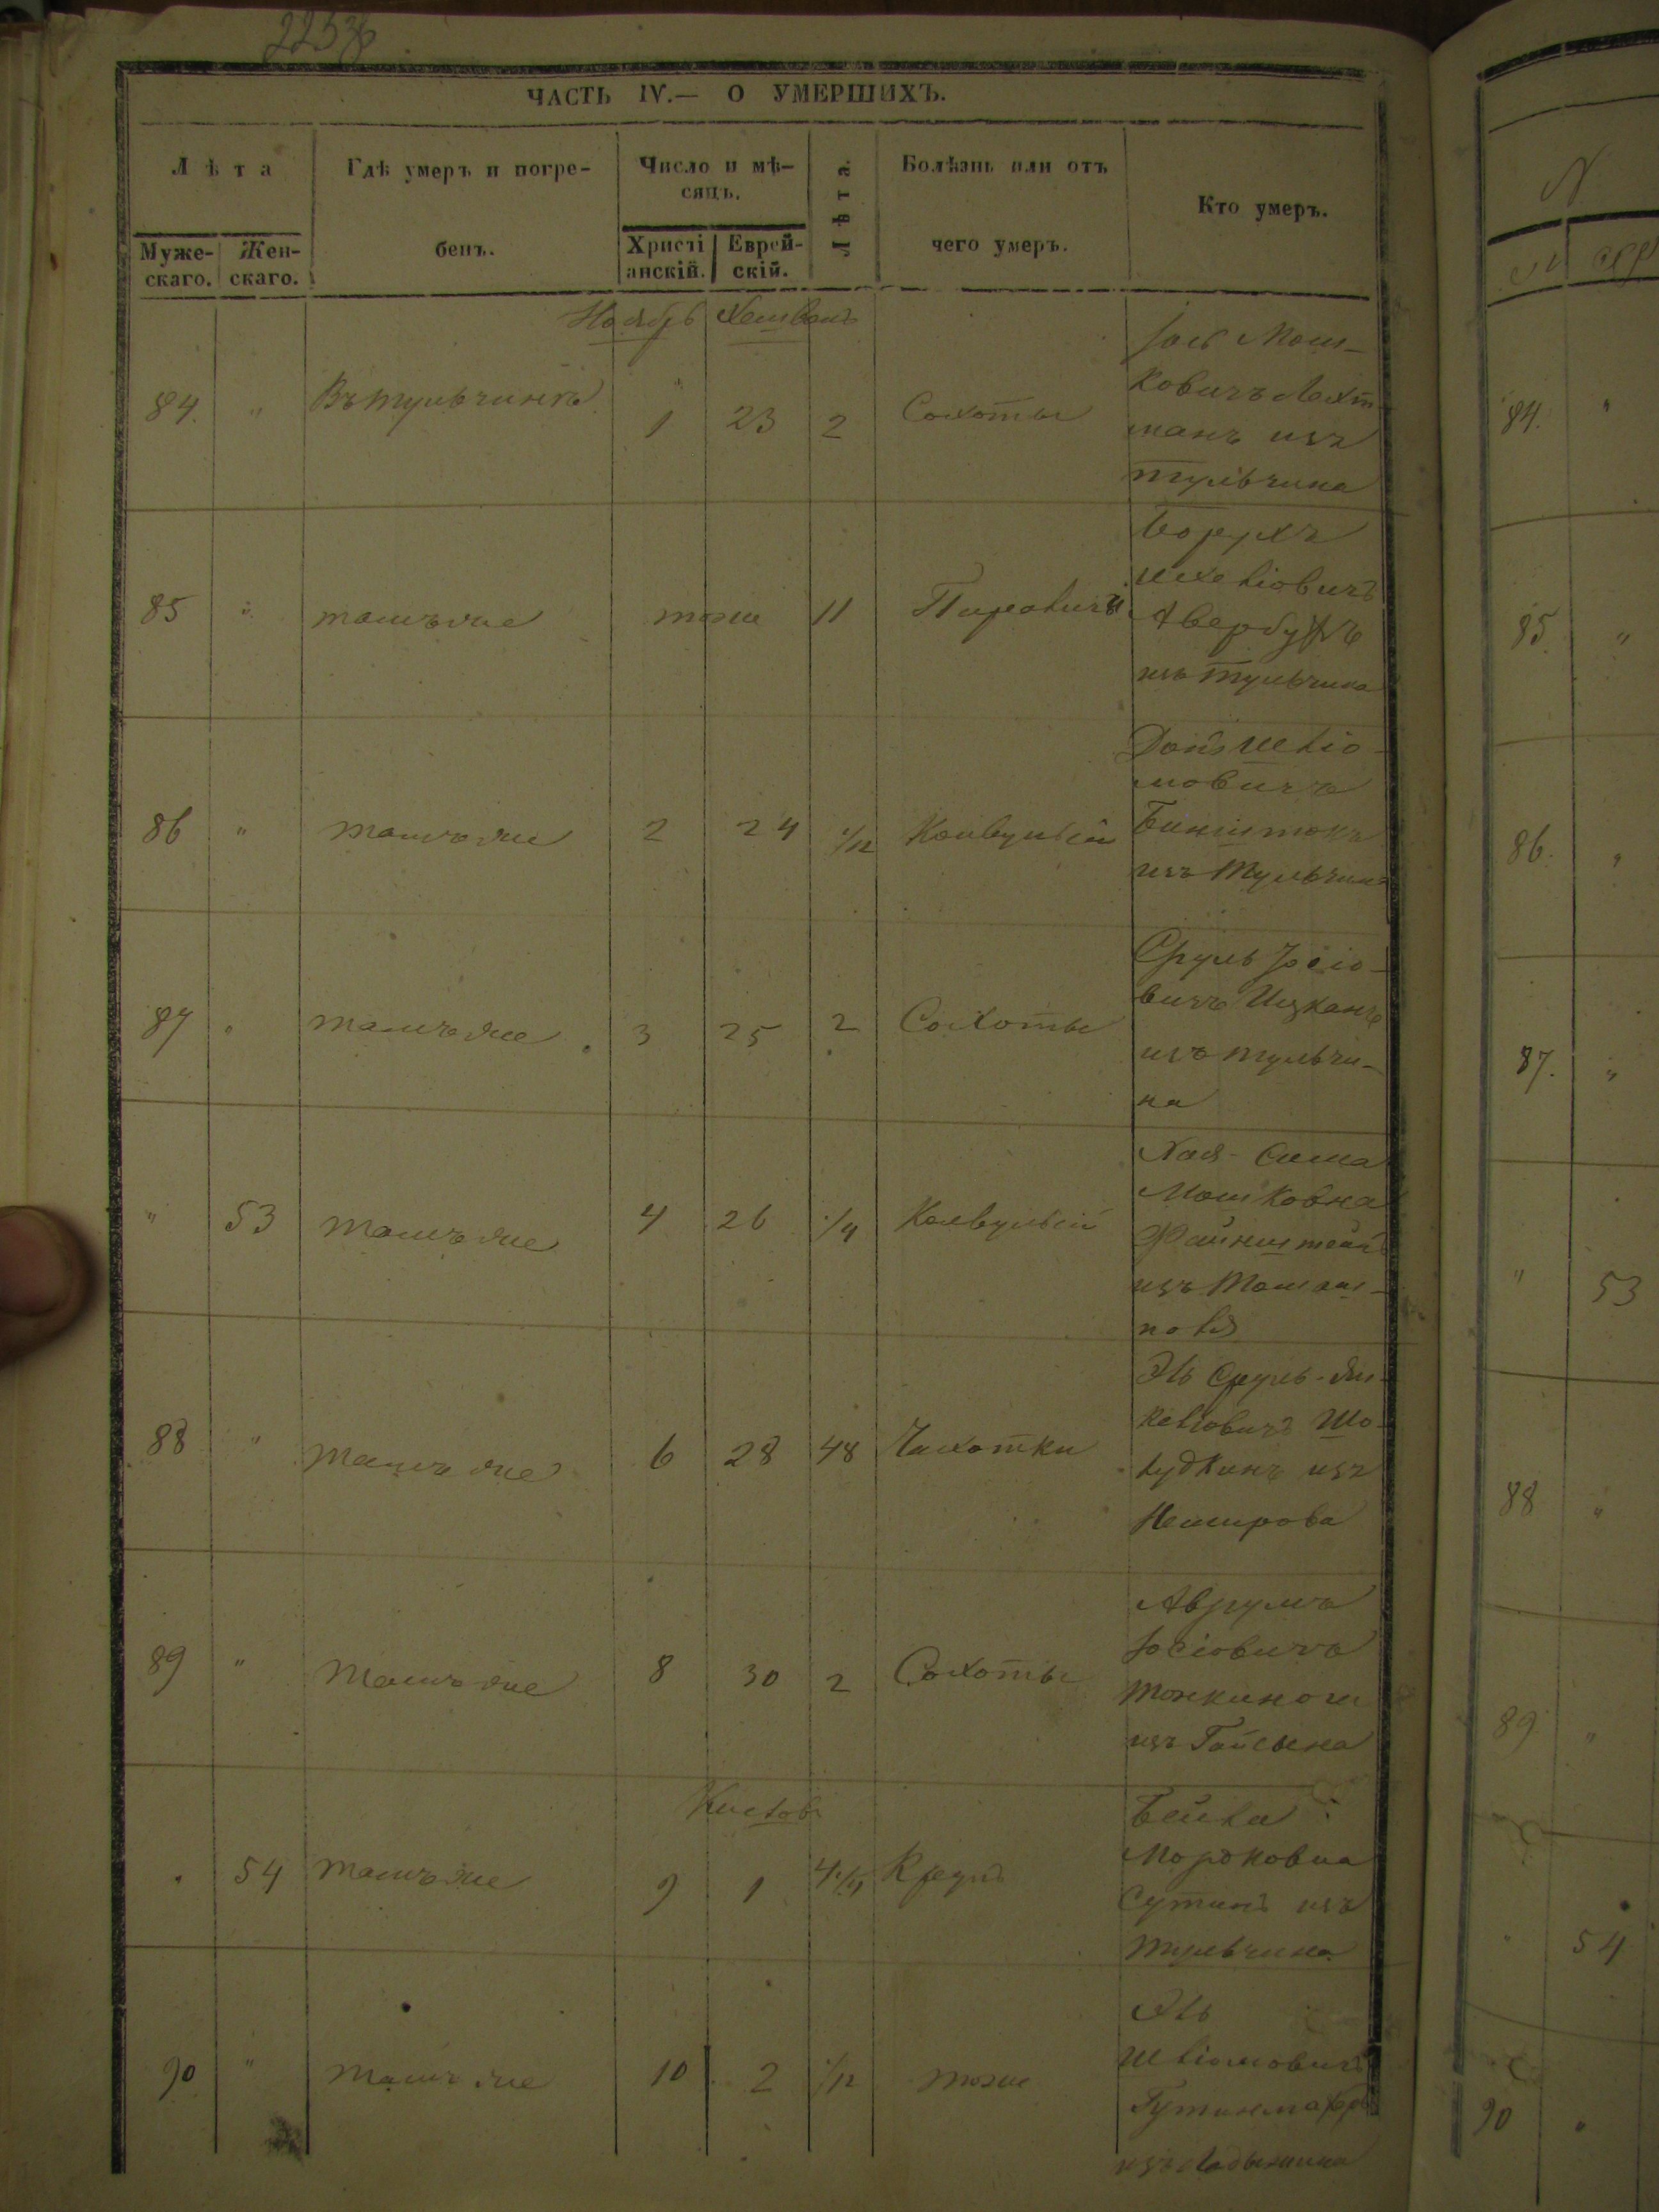 ЧАСТЬ IV.— О УМЕРШИХЪ.
Лѣта
Мужескаго.
Женскаго.
Гдѣ умеръ и погребенъ.
Число и мѣсяцъ.
Христіанскій.
Еврейскій.
Лѣта.
Болѣзнь или отъ чего умеръ.
Кто умеръ.
Ноябрь Хешванъ
84 " Въ тульчинѣ 1 23 2 Сохоты
Мош-
ковичъ Лехт
манъ изъ
тульчина
85 " тамъ же тоже 11
Борухъ
Авербухъ
изъ Тульчина
86 " тамъ же 2 24 1/12 Конвульсіи
мовичъ
изъ Тульчина
87 " тамъ же 3 25 2 Сохоты
Сруль Іосіо-
вичъ
изъ тульчи-
на
" 53 тамъ же 4 26 1/4 Конвульсій
Хая-Сима
Мошковна
Файнштейнъ
изъ Томаш-
поля
88 " тамъ же 6 28 48 Чахотки
Эль Сруль-Ян-
келіовичъ Шо-
лудкинъ изъ
Немирова
89 " тамъ же 8 30 2 Сохоты
Аврумъ
Іосіовичъ
Тонконоги
изъ Гайсына
Кислевъ
" 54 тамъ же 9 1 4 1/4 Крупъ
Бейла
Мордковна
Сутинъ изъ
тульчина
90 " тамъ же 10 2 1/12 тоже
Эль
Шліомовичъ
изъ Ладыжина
84. "
85. "
86. "
87. "
" 53
88 "
89 "
" 54
90 "